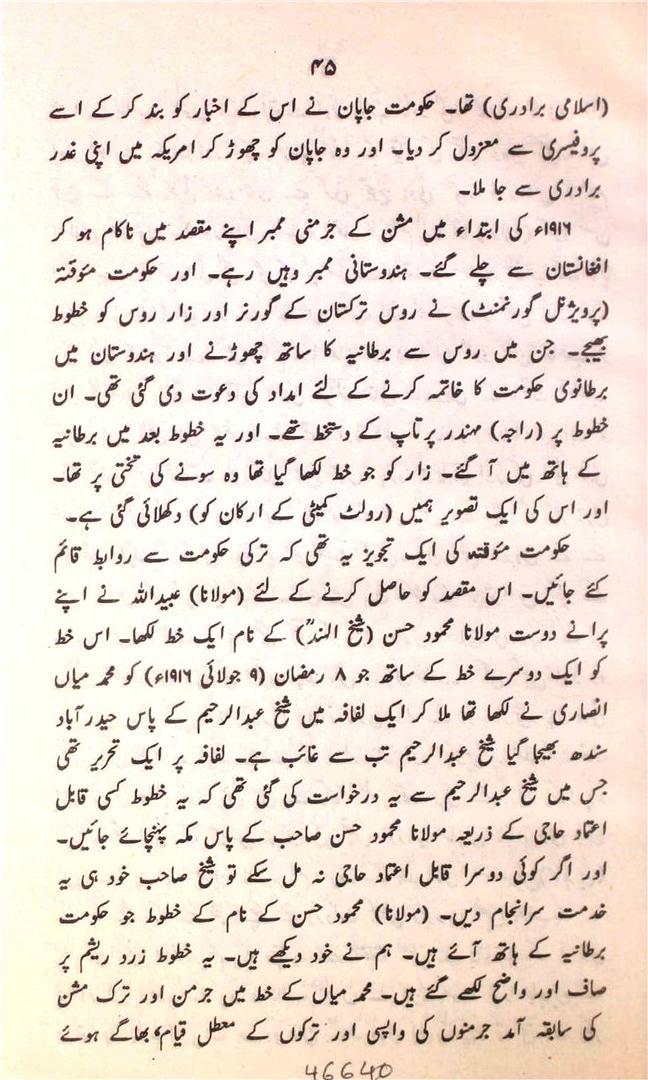 ۴۵
(اسلامی برادری) تھا۔ حکومت جاپان نے اس کے اخبار کو بند کر کے اسے
پروفیسری سے معزول کر دیا۔ اور وہ جاپان کو چھوڑ کر امریکہ میں اپنی غدر
برادری سے جا ملا۔
۱۹۱۶ء کی ابتداء میں مشن کے جرمنی ممبر اپنے مقصد میں ناکام ہو کر
افغانستان سے چلے گئے۔ ہندوستانی ممبر وہیں رہے۔ اور حکومت مئوقتۃ
(پرویژنل گورنمنٹ) نے روس ترکستان کے گورنر اور زار روس کو خطوط
بھیجے۔ جن میں روس سے برطانیہ کا ساتھ چھوڑنے اور ہندوستان میں
برطانوی حکومت کا خاتمہ کرنے کے لئے امداد کی دعوت دی گئی تھی۔ ان
خطوط پر (راجہ) مہندر پرتاپ کے دستخط تھے۔ اور یہ خطوط بعد میں برطانیہ
کے ہاتھ میں آ گئے۔ زار کو جو خط لکھا گیا تھا وہ سونے کی تختی پر تھا۔
اور اس کی ایک تصویر ہمیں (رولٹ کمیٹی کے ارکان کو) دکھلائی گئی ہے۔
حکومت مئوقتہ کی ایک تجویز یہ تھی کہ ترکی حکومت سے روابط قائم
کئے جائیں۔ اس مقصد کو حاصل کرنے کے لئے (مولانا) عبیداللہ نے اپنے
پرانے دوست مولانا محمود حسن (شیخ الہندؒ) کے نام ایک خط لکھا۔ اس خط
کو ایک دوسرے خط کے ساتھ جو ۸ رمضان (۹ جولائی ۱۹۱۶ء) کو محمد میاں
انصاری نے لکھا تھا ملا کر ایک لفافہ میں شیخ عبدالرحیم کے پاس حیدرآباد
سندھ بھیجا گیا شیخ عبدالرحیم تب سے غائب ہے۔ لفافہ پر ایک تحریر تھی
جس میں شیخ عبدالرحیم سے یہ درخواست کی گئی تھی کہ یہ خطوط کسی قابل
اعتماد حاجی کے ذریعہ مولانا محمود حسن صاحب کے پاس مکہ پہنچائے جائیں۔
اور اگر کوئی دوسرا قابل اعتماد حاجی نہ مل سکے تو شیخ صاحب خود ہی یہ
خدمت سرانجام دیں۔ (مولانا) محمود حسن کے نام کے خطوط جو حکومت
برطانیہ کے ہاتھ آئے ہیں۔ ہم نے خود دیکھے ہیں۔ یہ خطوط زرد ریشم پر
صاف اور واضح لکھے گئے ہیں۔ محمد میاں کے خط میں جرمن اور ترک مشن
کی سابقہ آمد جرمنوں کی واپسی اور ترکوں کے معطل قیام، بھاگے ہوئے
46640